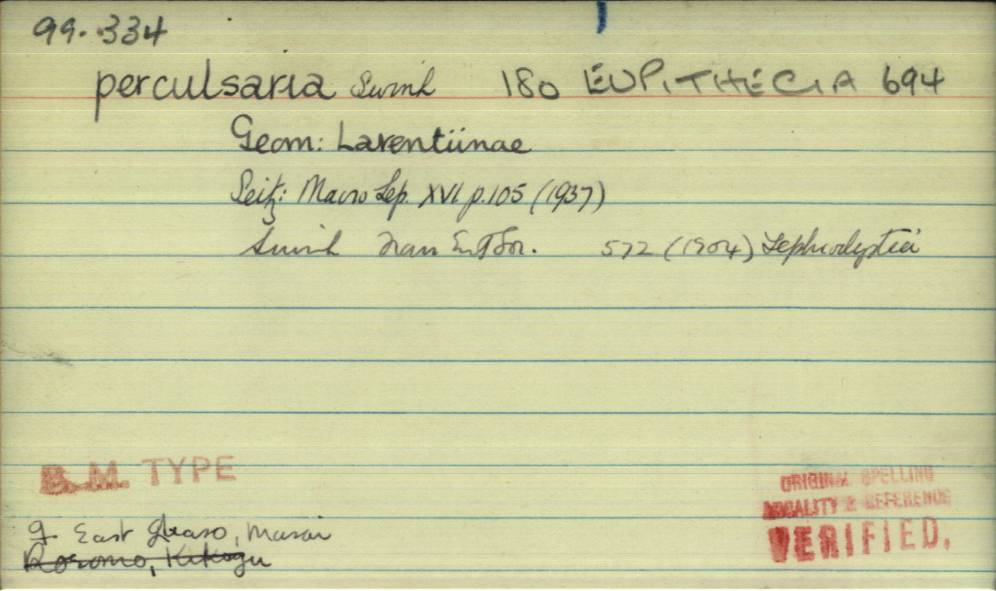 99.334
perculsaria Swinh 180 EUPITHECIA 694
Geom: Larentiinae
Seitz: Macro Lep. XVI p.105 (1937)
Swinh Tran Ent Soc. 572 (1904) Tephroclystia
B.M. TYPE
ORIGINAL SPELLING
LOCALITY & REFERENCE
VERIFIED.
East Gwaso, Masai